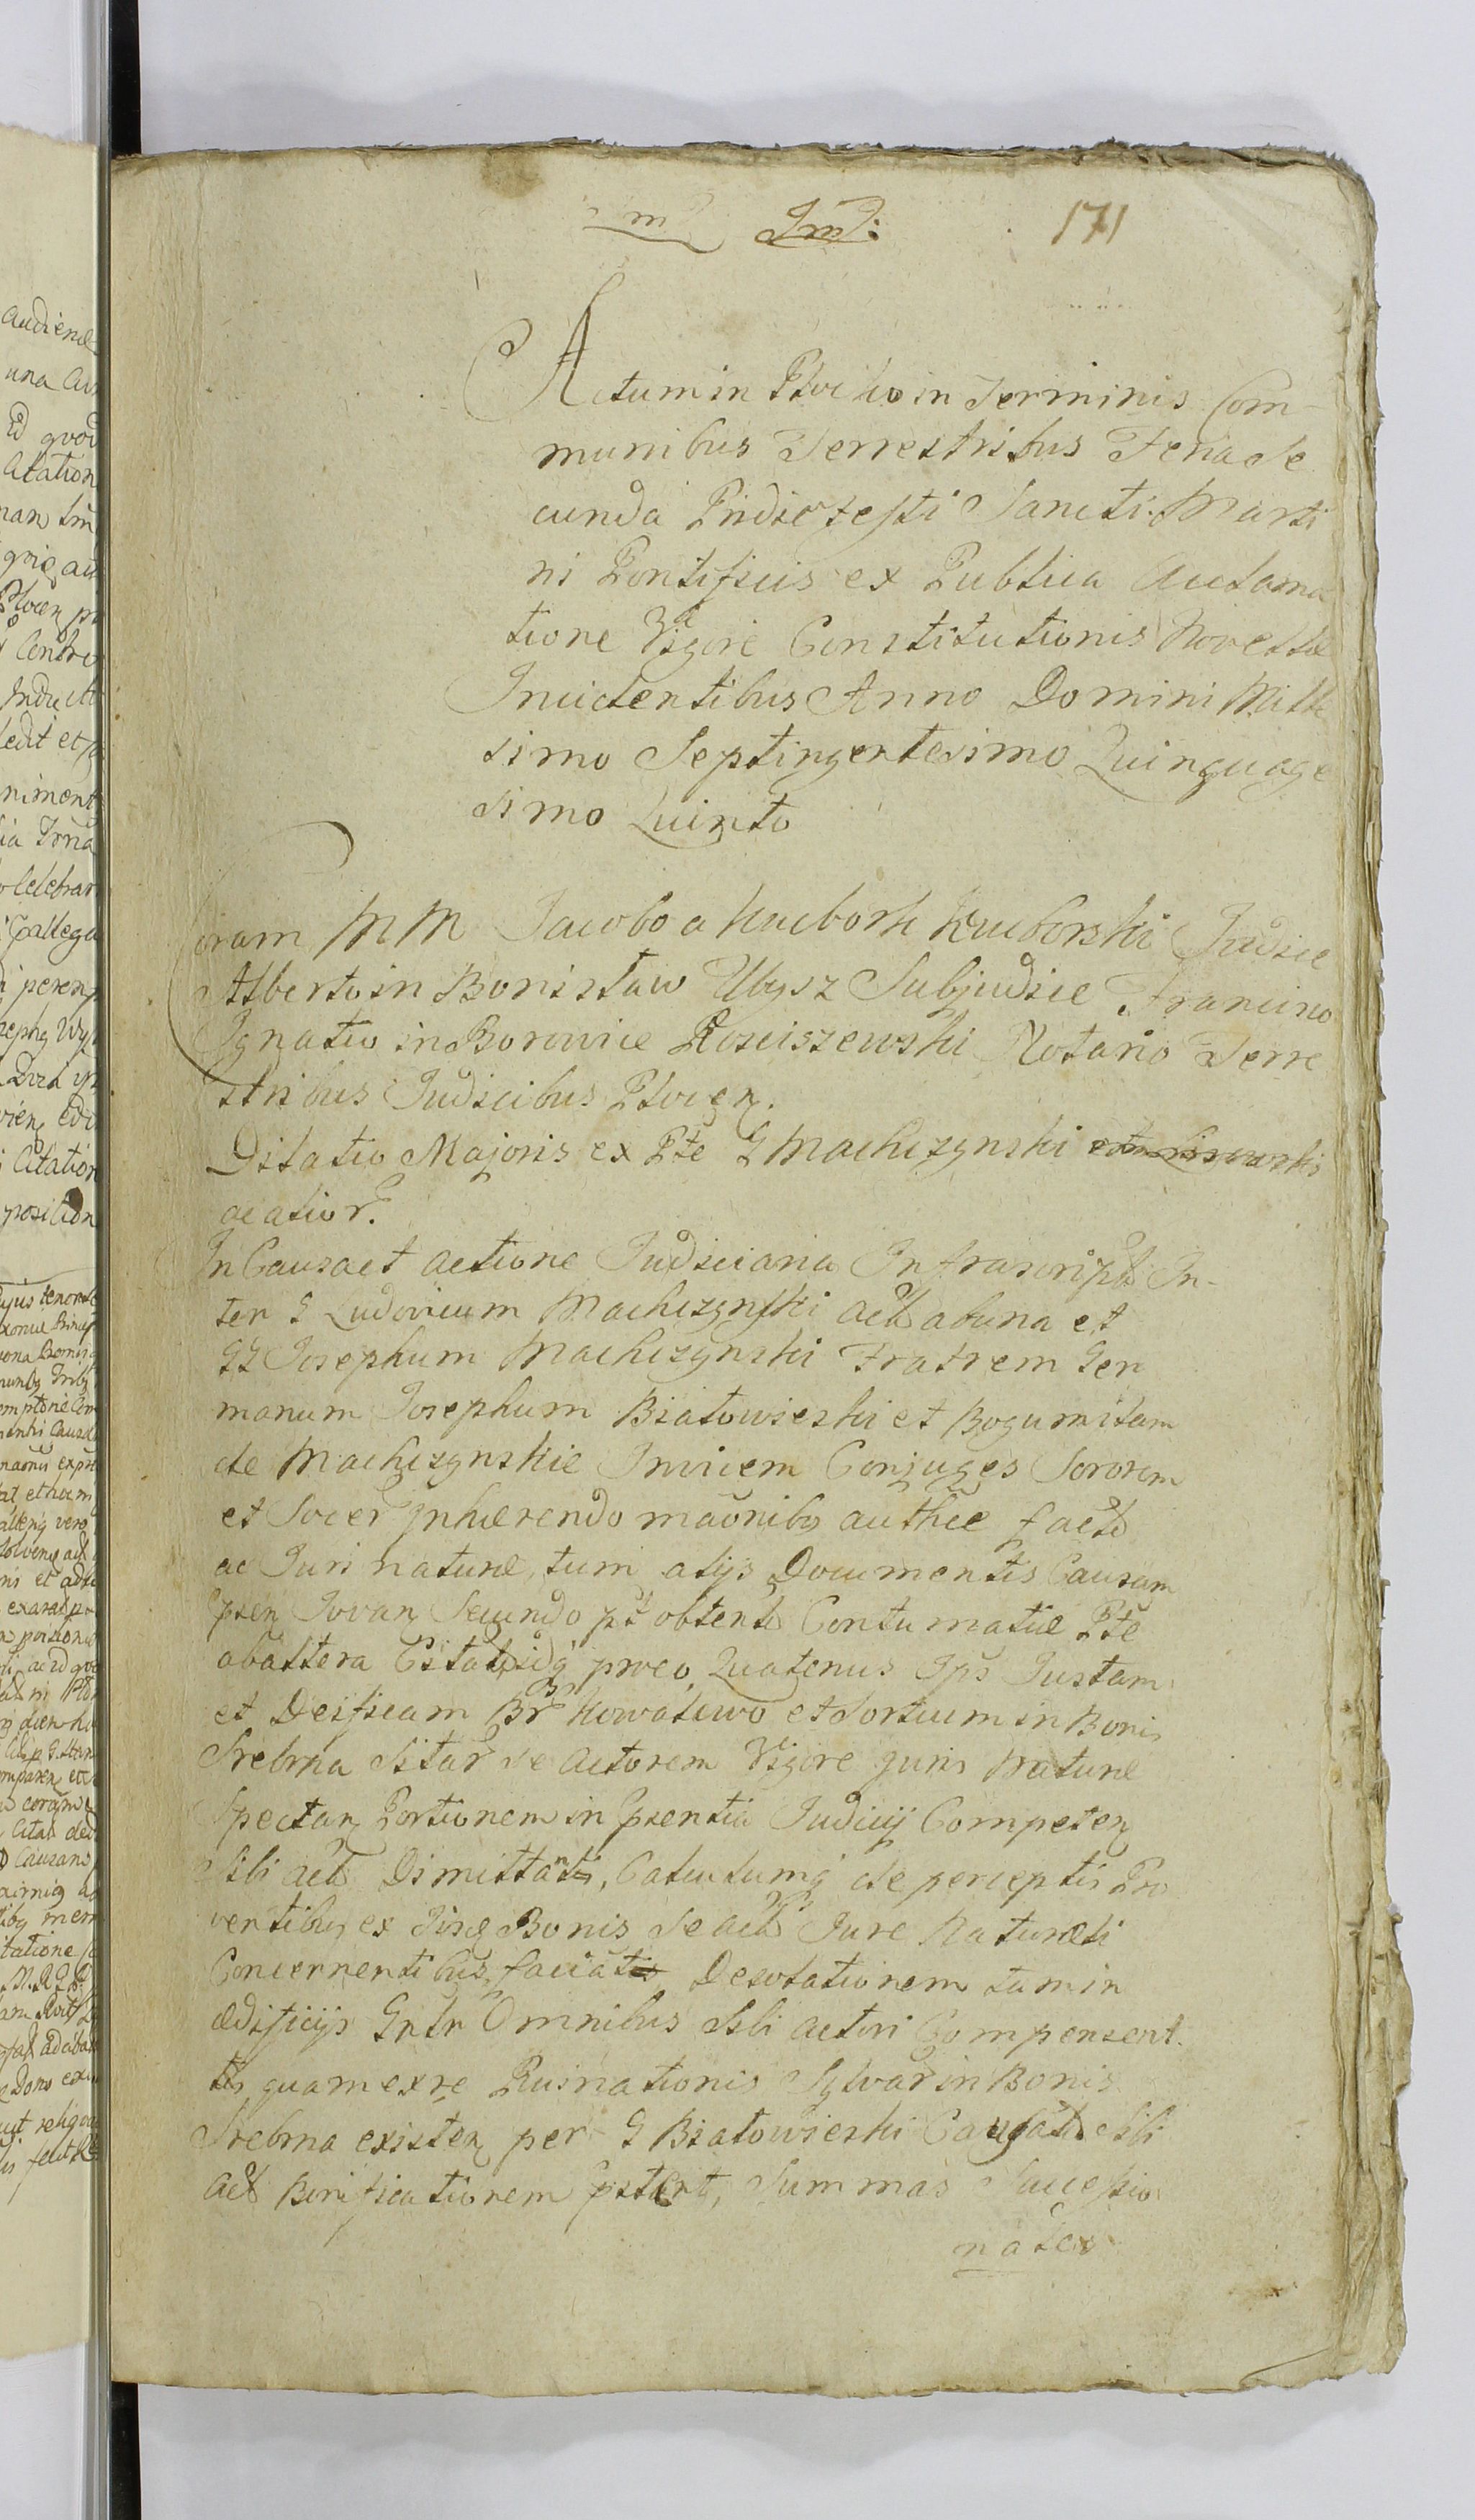 171
Actum in Ploc ko in Terminis Com-
munibus Terrestribus Feria Se
cunda Pridie Festi Sancti Marti
ni Pontificis ex Publica Aclama
tione Vigore Constitutionis Novellæ
Incidentibus Anno Domini Mille
simo Septingentesimo Quinquage
simo Quinto
Coram MM Jacobo a Kucbork Kucborski Judice
Alberto in Bonisław Ubysz Subjudice Francisco
Ignatio in Borowice Rosciszewski Notario Terre
stribus Judicibus Plocen.
Dilatio Majoris ex Pte G Machczynski
acatior.
In Causa et actione Judiciaria Infrascripta In-
ter G Ludovicum Machczynski act ab una et
GG Josephum Machczynski Fratrem Ger
manum Josephum Białowieski et Bogumilam
de Machczynskie Invicem Conjuges Sororem
et Socer inhærendo maonibq authce fact
ac Juri naturæ, tum alijs Documentis Causam
psen Jovan Secundo pt obtent Contumatiæ Pte
ab altera Citat idq prœo, Quatenus Ips Justam
et Deificam Br Kowalewo et Sortium in Bonis
Srebrna Sitar se Actorem Vigore juris Naturæ
Spectan Portionem in Psentia Judicij Competen
Sibi act Dimittant, Calculumq de perceptis Pro
ventibus ex Jisd Bonis se act Jure Naturæli
Concernentibus, faciat Desolationem tam in
ædificijs Gnlr Omnibus Sibi actori Compensent
quam exre Ruinationis Sylvar in Bonis
Srebrna existen per G Białowieski Causat Sibi
act Bonificationem pstent, Summas Succefsio
nales